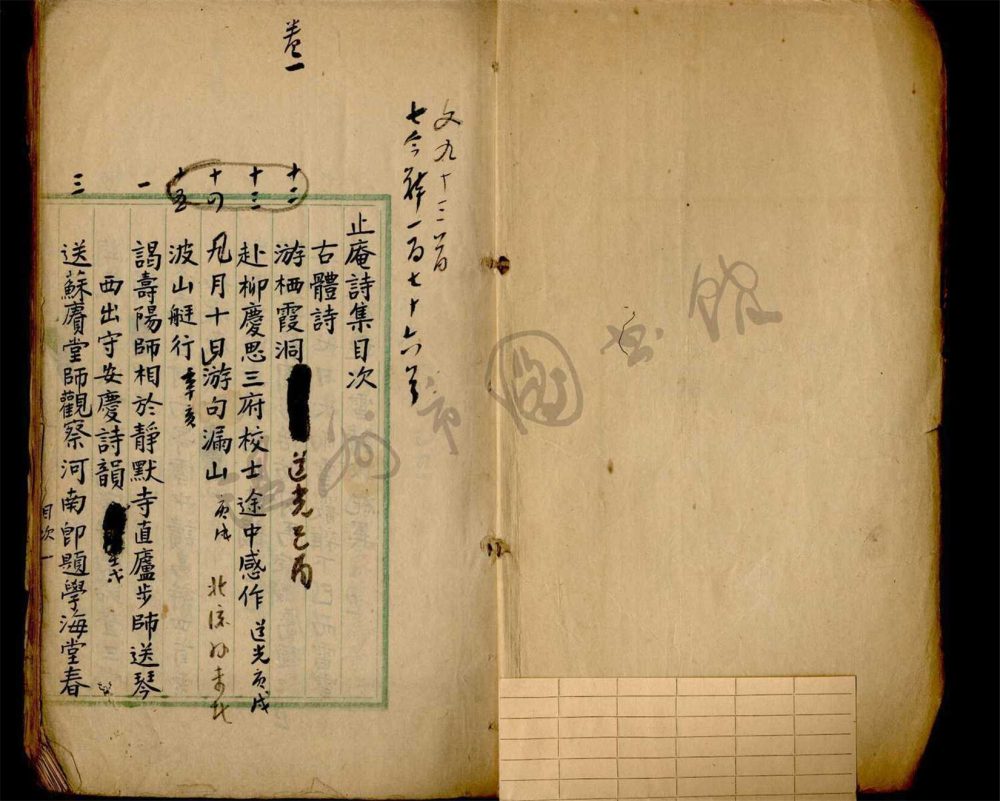 卷一
文九十三首
今一百七十六首
止庵詩集目次
古體詩
十二 游栖霞洞 道光己酉
十三 赴柳慶思三府校士途中感作 道光庚戌
十四 九月十日游句漏山 庚戌 北流
十五 波山艇行 辛亥
一 謁壽陽師相於靜默寺直廬步師送琴
西出守安慶詩韻
三 送蘇賡堂師觀察河南即題學海堂春
目次一
溫州市圖书館